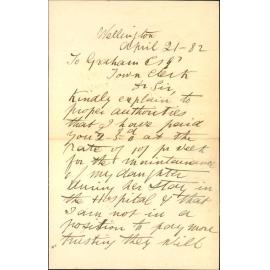 Wellington
April 21-82
To Graham Esqr
Town Clerk
Dr Sir,
Kindly explain to
proper authorities
that I have paid
you
at the
rate of 10/ pr week
for the maintainance
of my daughter
During her stay in
the Hospital & that
I am not in a
position to pay more
trusting they will